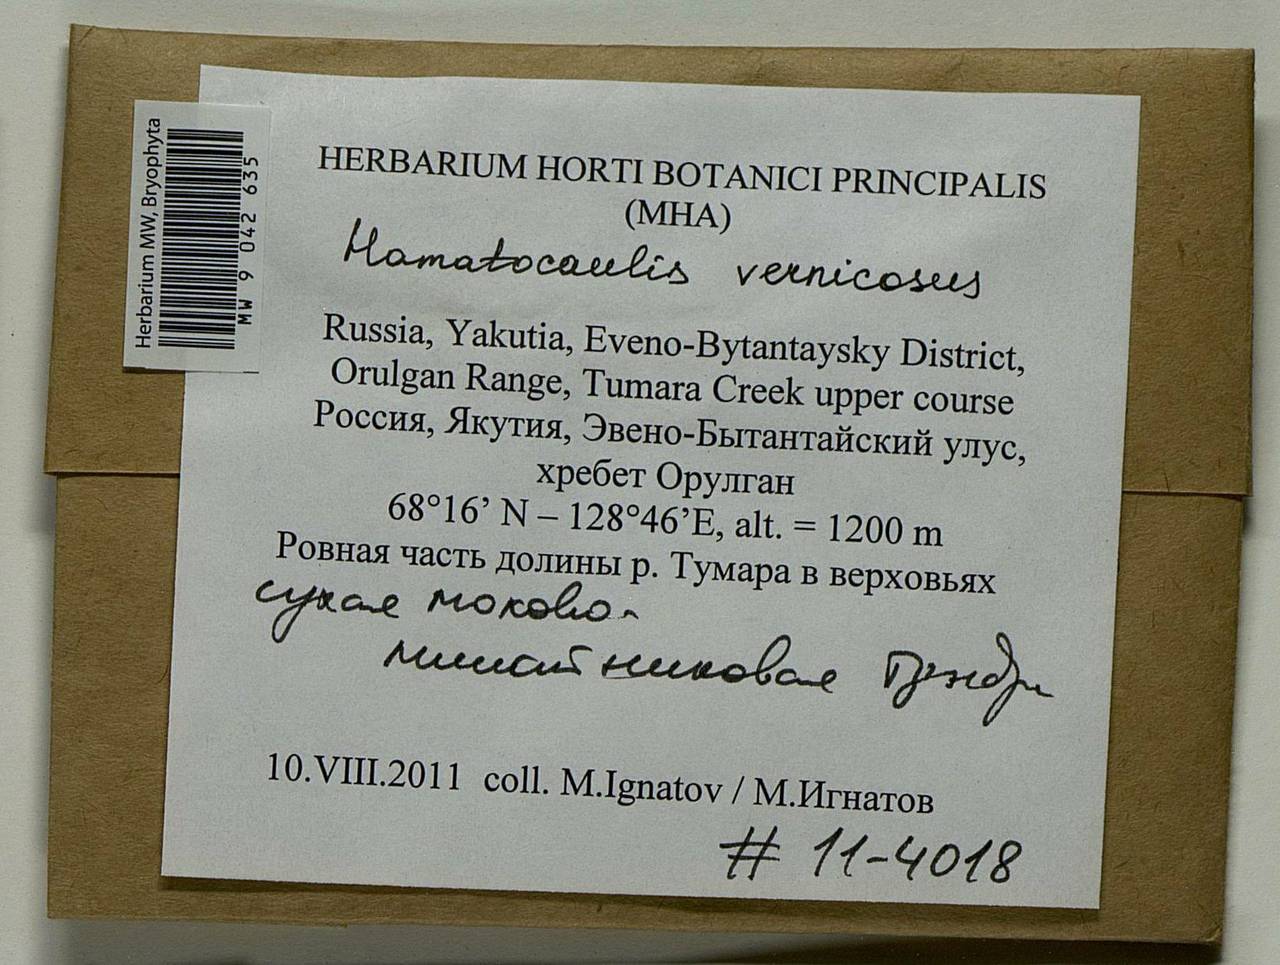 Herbarium MW, Bryophyta
MW 9 042 635
HERBARIUM HORTI BOTANICI PRINCIPALIS
(MHA)
Hamatocaulis vernicosus
Russia, Yakutia, Eveno-Bytantaysky District,
Orulgan Range, Tumara Creek upper course
Россия, Якутия, Эвено-Бытантайский улус,
хребет Орулган
68°16’ N – 128°46’E, alt. = 1200 m
Ровная часть долины р. Тумара в верховьях
сухая мохово-
лишайниковая тундра
10.VIII.2011 coll. M.Ignatov / М.Игнатов
# 11-4018